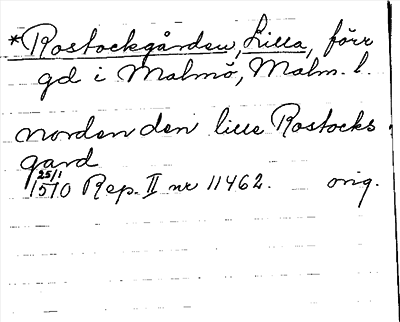 *Rostockgården, Lilla, förr
gd i Malmö, Malm. l.
norden den lille Rostocks
gard
25/1 1510 Rep. II nr 11462. orig.